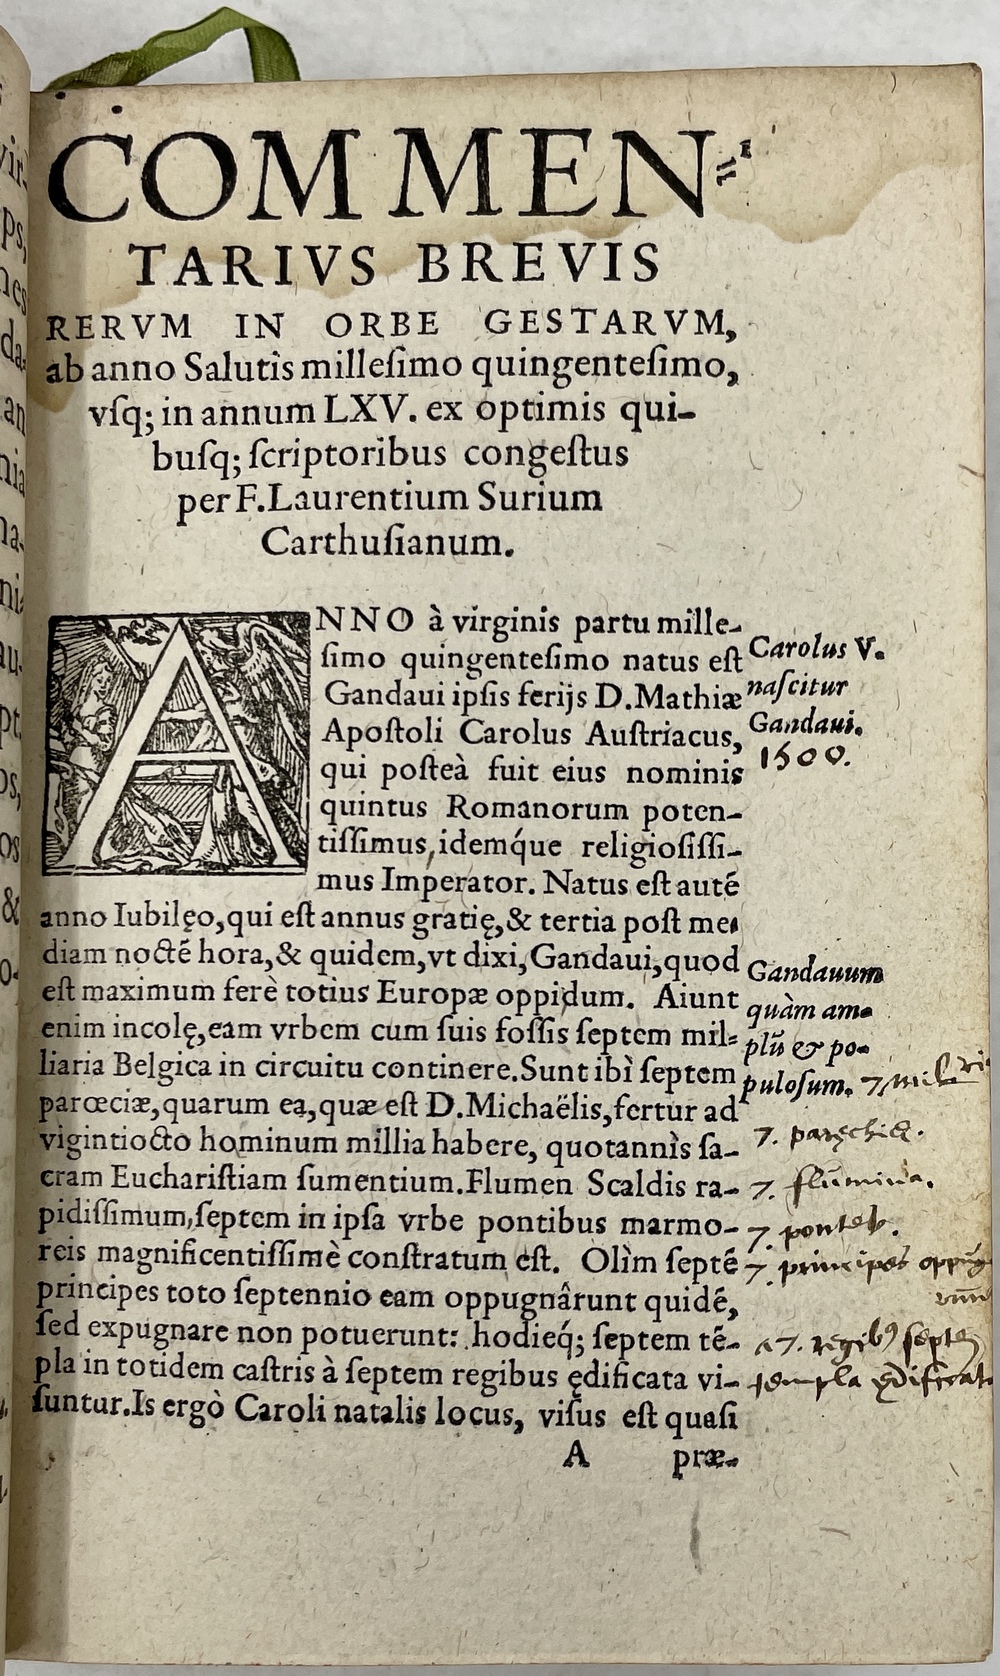 COMMEN⸗
TARIVS BREVIS
RERVM IN ORBE GESTARVM,
ab anno Salutis milleſimo quingenteſimo,
vſq; in annum LXV. ex optimis qui-
buſq; ſcriptoribus congeſtus
per F.Laurentium Surium
Carthuſianum.
ANNO à virginis partu mille-
ſimo quingenteſimo natus eſt
Gandaui ipſis ferijs D.Mathiæ
Apoſtoli Carolus Auſtriacus,
qui poſteà fuit eius nominis
quintus Romanorum poten-
tiſſimus, idemq́ue religioſiſſi-
mus Imperator. Natus eſt autē
anno Iubilęo,qui eſt annus gratię,& tertia poſt me-
diam noctē hora,& quidem,vt dixi,Gandaui,quod
eſt maximum ferè totius Europæ oppidum. Aiunt
enim incolę,eam vrbem cum ſuis foſſis ſeptem mil⸗
liaria Belgica in circuitu continere.Sunt ibì ſeptem
parœciæ,quarum ea,quæ eſt D.Michaëlis,fertur ad
vigintiocto hominum millia habere, quotannìs ſa-
cram Euchariſtiam ſumentium.Flumen Scaldis ra-
pidiſſimum,ſeptem in ipſa vrbe pontibus marmo-
reis magnificentiſſimè conſtratum eſt. Olìm ſeptē
principes toto ſeptennio eam oppugnârunt quidē,
ſed expugnare non potuerunt: hodieq́; ſeptem tē-
pla in totidem caſtris à ſeptem regibus ędificata vi-
ſuntur.Is ergò Caroli natalis locus, viſus eſt quaſi
A præ-
Carolus V.
naſcitur
Gandaui.
1500.
Gandauum
quàm am-
plū & po-
puloſum.
7. paręchię.
7. flūmina.
7. pontes.
7. principes
a 7. regibꝰ septē
templa ędificat